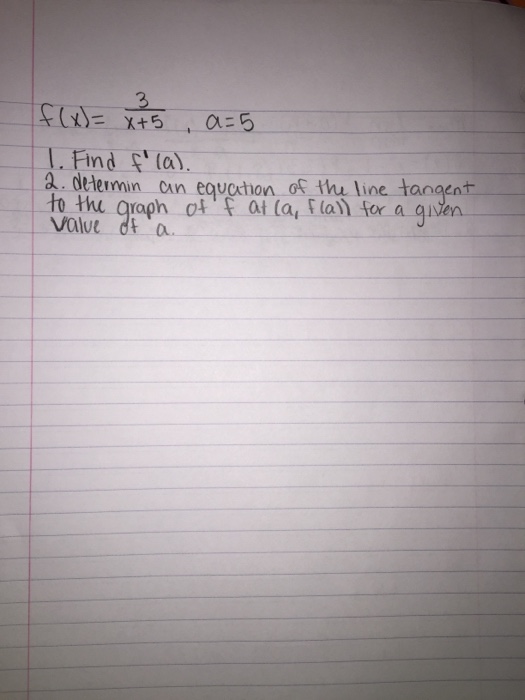 f(x)= 3/x+5 , a=5
1. Find f'(a).
2. determin an equation of the line tangent
to the graph of f at (a, f(a)) for a given
value of a.